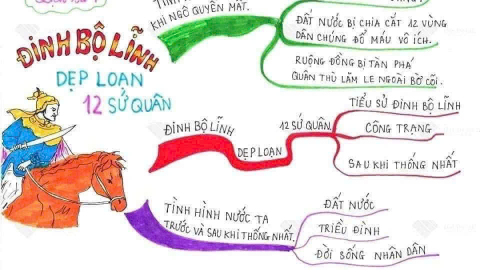 KHI NGÔ QUYỀN MẤT.
ĐẤT NƯỚC BỊ CHIA CẮT 12 VÙNG
DÂN CHÚNG ĐỔ MÁU VÔ ÍCH.
RUỘNG ĐỒNG BỊ TÀN PHÁ
QUÂN THÙ LĂM LE NGOÀI BỜ CÕI.
ĐINH BỘ LĨNH
DẸP LOẠN
12 SỨ QUÂN
ĐINH BỘ LĨNH
DẸP LOẠN
12 SỨ QUÂN
TIỂU SỬ ĐINH BỘ LĨNH
CÔNG TRẠNG
SAU KHI THỐNG NHẤT
TÌNH HÌNH NƯỚC TA
TRƯỚC VÀ SAU KHI THỐNG NHẤT.
ĐẤT NƯỚC
TRIỀU ĐÌNH
ĐỜI SỐNG NHÂN DÂN